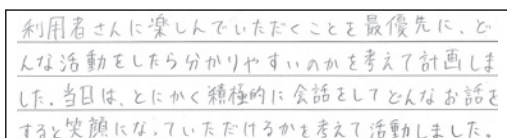 利用者さんに楽しんでいただくことを最優先に、ど
んな活動をしたら分かりやすいのかを考えて計画しま
した。当日は、とにかく積極的に会話をしてどんなお話を
すると笑顔になっていただけるかを考えて活動しました。